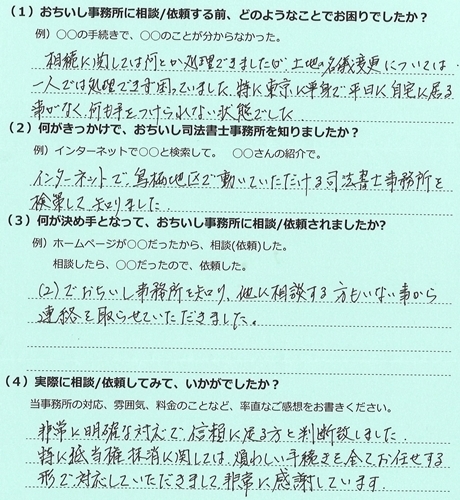 (1)おちいし事務所に相談/依頼する前、どのようなことでお困りでしたか？
例）○○の手続きで、○○のことが分からなかった。
相続に関しては何とか処理できましたが土地の名義変更については
一人では処理できず困っていました。特に東京に単身で平日に自宅に居る
事がなく、何も手をつけられない状態でした。
(2)何がきっかけで、おちいし司法書士事務所を知りましたか？
例）インターネットで○○と検索して。　○○さんの紹介で。
インターネットで鳥栖地区で動いていただける司法書士事務所を
検索して知りました。
(3)何が決め手となって、おちいし事務所に相談/依頼されましたか？
例）ホームページが○○だったから、相談(依頼)した。
相談したら、○○だったので、依頼した。
(2)でおちいし事務所を知り、他に相談する方もいない事から
連絡を取らせていただきました。
(4)実際に相談/依頼してみて、いかがでしたか？
当事務所の対応、雰囲気、料金のことなど、率直なご感想をお書きください。
非常に明確な対応で信頼に足る方と判断致しました。
特に抵当権抹消に関しては、煩わしい手続きを全てお任せする
形で対応していただきまして非常に感謝しています。